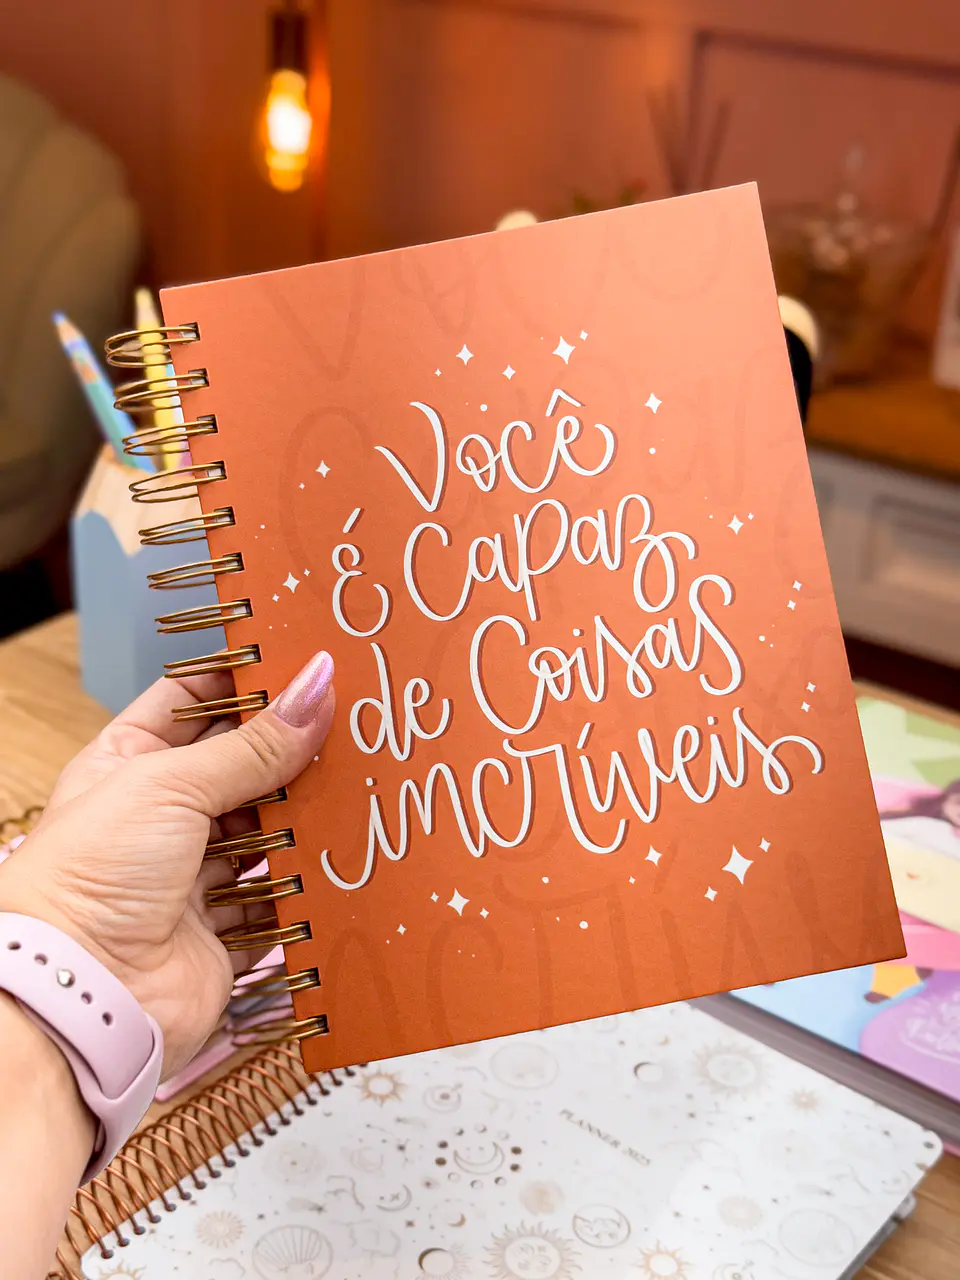 Você
é capaz
de coisas
incríveis
PLANNER 2025